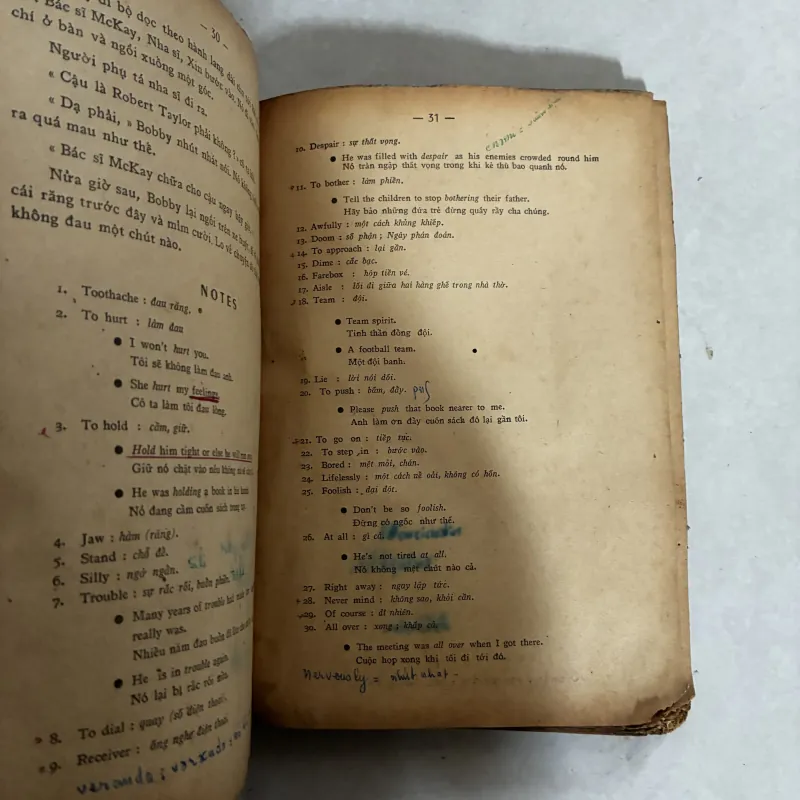 — 30 —
đi bộ dọc theo hành lang
Bác sĩ McKay, Nha sĩ, Xin bước vào.
chí ở bàn và ngồi xuống một góc.
Người phụ tá nha sĩ đi ra.
« Cậu là Robert Taylor phải không ?
« Dạ phải, » Bobby nhút nhát nói.
ra quá mau như thế.
« Bác sĩ McKay chữa cho cậu ngay bây giờ
Nửa giờ sau, Bobby lại ngồi trên xe buýt,
cái răng trước đây và mỉm cười. Lo về chuyện
không đau một chút nào.
NOTES
1. Toothache : đau răng.
2. To hurt : làm đau
● I won't hurt you.
Tôi sẽ không làm đau anh.
● She hurt my feelings.
Cô ta làm tôi đau lòng.
3. To hold : cầm, giữ.
● Hold him tight or else he will run
Giữ nó chặt vào nếu không nó
● He was holding a book in his hand
Nó đang cầm cuốn sách trong tay
4. Jaw : hàm (răng).
5. Stand : chỗ để.
6. Silly : ngớ ngẩn.
7. Trouble : sự rắc rối, buồn phiền.
● Many years of trouble had
really was.
Nhiều năm đau buồn đã làm
● He is in trouble again.
Nó lại bị rắc rối nữa.
8. To dial : quay (số điện thoại).
9. Receiver : ống nghe điện thoại
veranda :
— 31 —
10. Despair : sự thất vọng.
● He was filled with despair as his enemies crowded round him
Nó tràn ngập thất vọng trong khi kẻ thù bao quanh nó.
11. To bother : làm phiền.
● Tell the children to stop bothering their father.
Hãy bảo những đứa trẻ đừng quấy rầy cha chúng.
12. Awfully : một cách khủng khiếp.
13. Doom : số phận ; Ngày phán đoán.
14. To approach : lại gần.
15. Dime : cắc bạc.
16. Farebox : hộp tiền vé.
17. Aisle : lối đi giữa hai hàng ghế trong nhà thờ.
18. Team : đội.
● Team spirit.
Tinh thần đồng đội.
● A football team.
Một đội banh.
19. Lie : lời nói dối.
20. To push : bấm, đẩy.
● Please push that book nearer to me.
Anh làm ơn đẩy cuốn sách đó lại gần tôi.
21. To go on : tiếp tục.
22. To step in : bước vào.
23. Bored : mệt mỏi, chán.
24. Lifelessly : một cách uể oải, không có hồn.
25. Foolish : dại dột.
● Don't be so foolish.
Đừng có ngốc như thế.
26. At all : gì cả.
● He's not tired at all.
Nó không mệt chút nào cả.
27. Right away : ngay lập tức.
28. Never mind : không sao, khỏi cần.
29. Of course : dĩ nhiên.
30. All over : xong ; khắp cả.
● The meeting was all over when I got there.
Cuộc họp xong khi tôi đi tới đó.
Nervously = nhút nhát